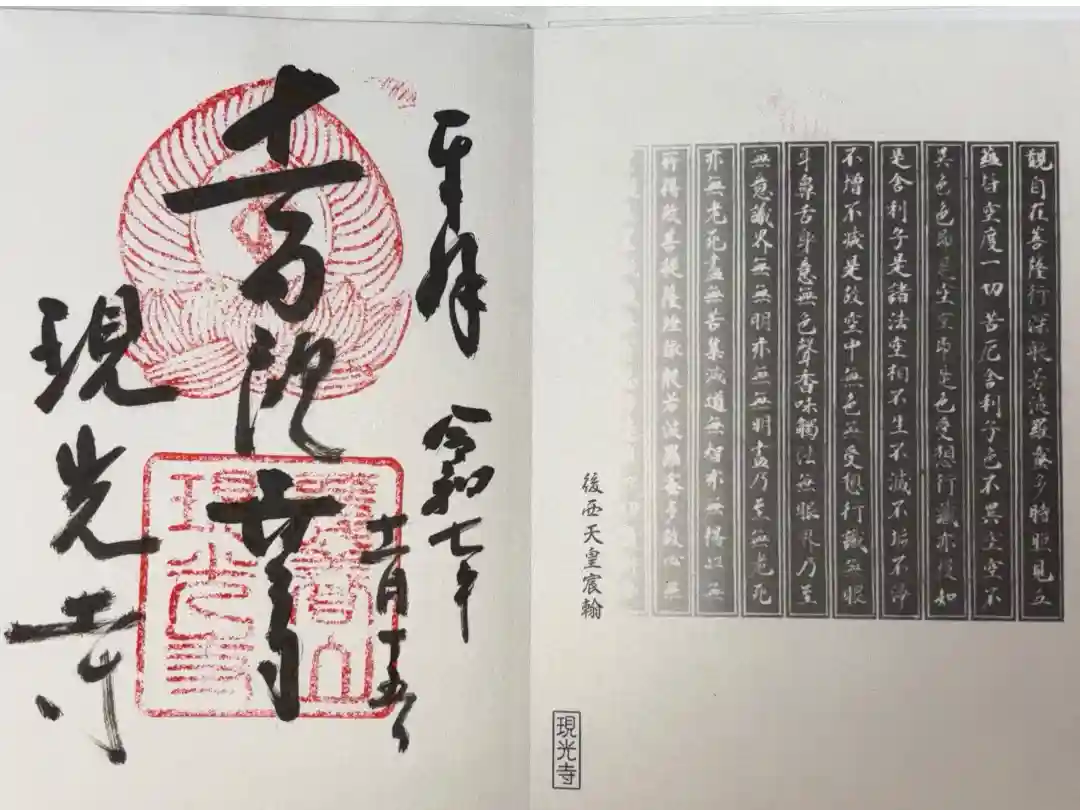 觀自在菩薩行深般若波羅蜜多時照見五
蘊皆空度一切苦厄舍利子色不異空空不
異色色即是空空即是色受想行識亦復如
是舍利子是諸法空相不生不滅不垢不淨
不增不減是故空中無色無受想行識無眼
耳鼻舌身意無色聲香味觸法無眼界乃至
無意識界無無明亦無無明盡乃至無老死
亦無老死盡無苦集滅道無智亦無得以無
所得故菩提薩埵依般若波羅蜜多故心無
後西天皇宸翰
現光寺
奉拝
令和七年
十一月十五日
十一面観世音
現光寺